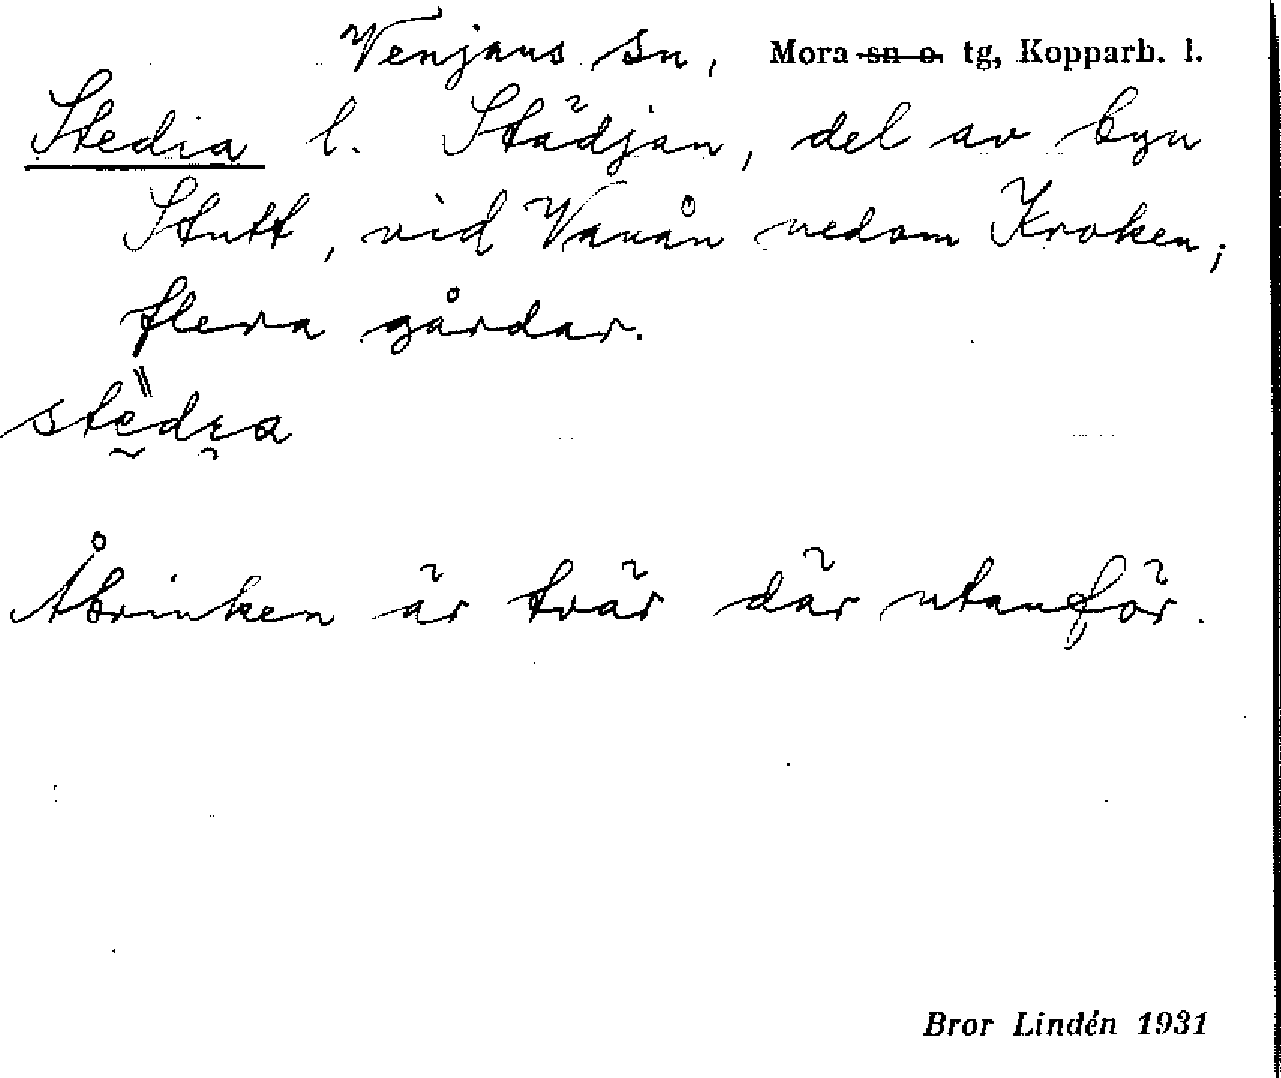 Venjans sn, Mora sn o. tg, Kopparb. l.
Stedia l. Städjan, del av byn
Stutt, vid Vanån nedom Kroken;
flera gårdar.
Åbrinken är tvär där utanför.
Bror Lindén 1931